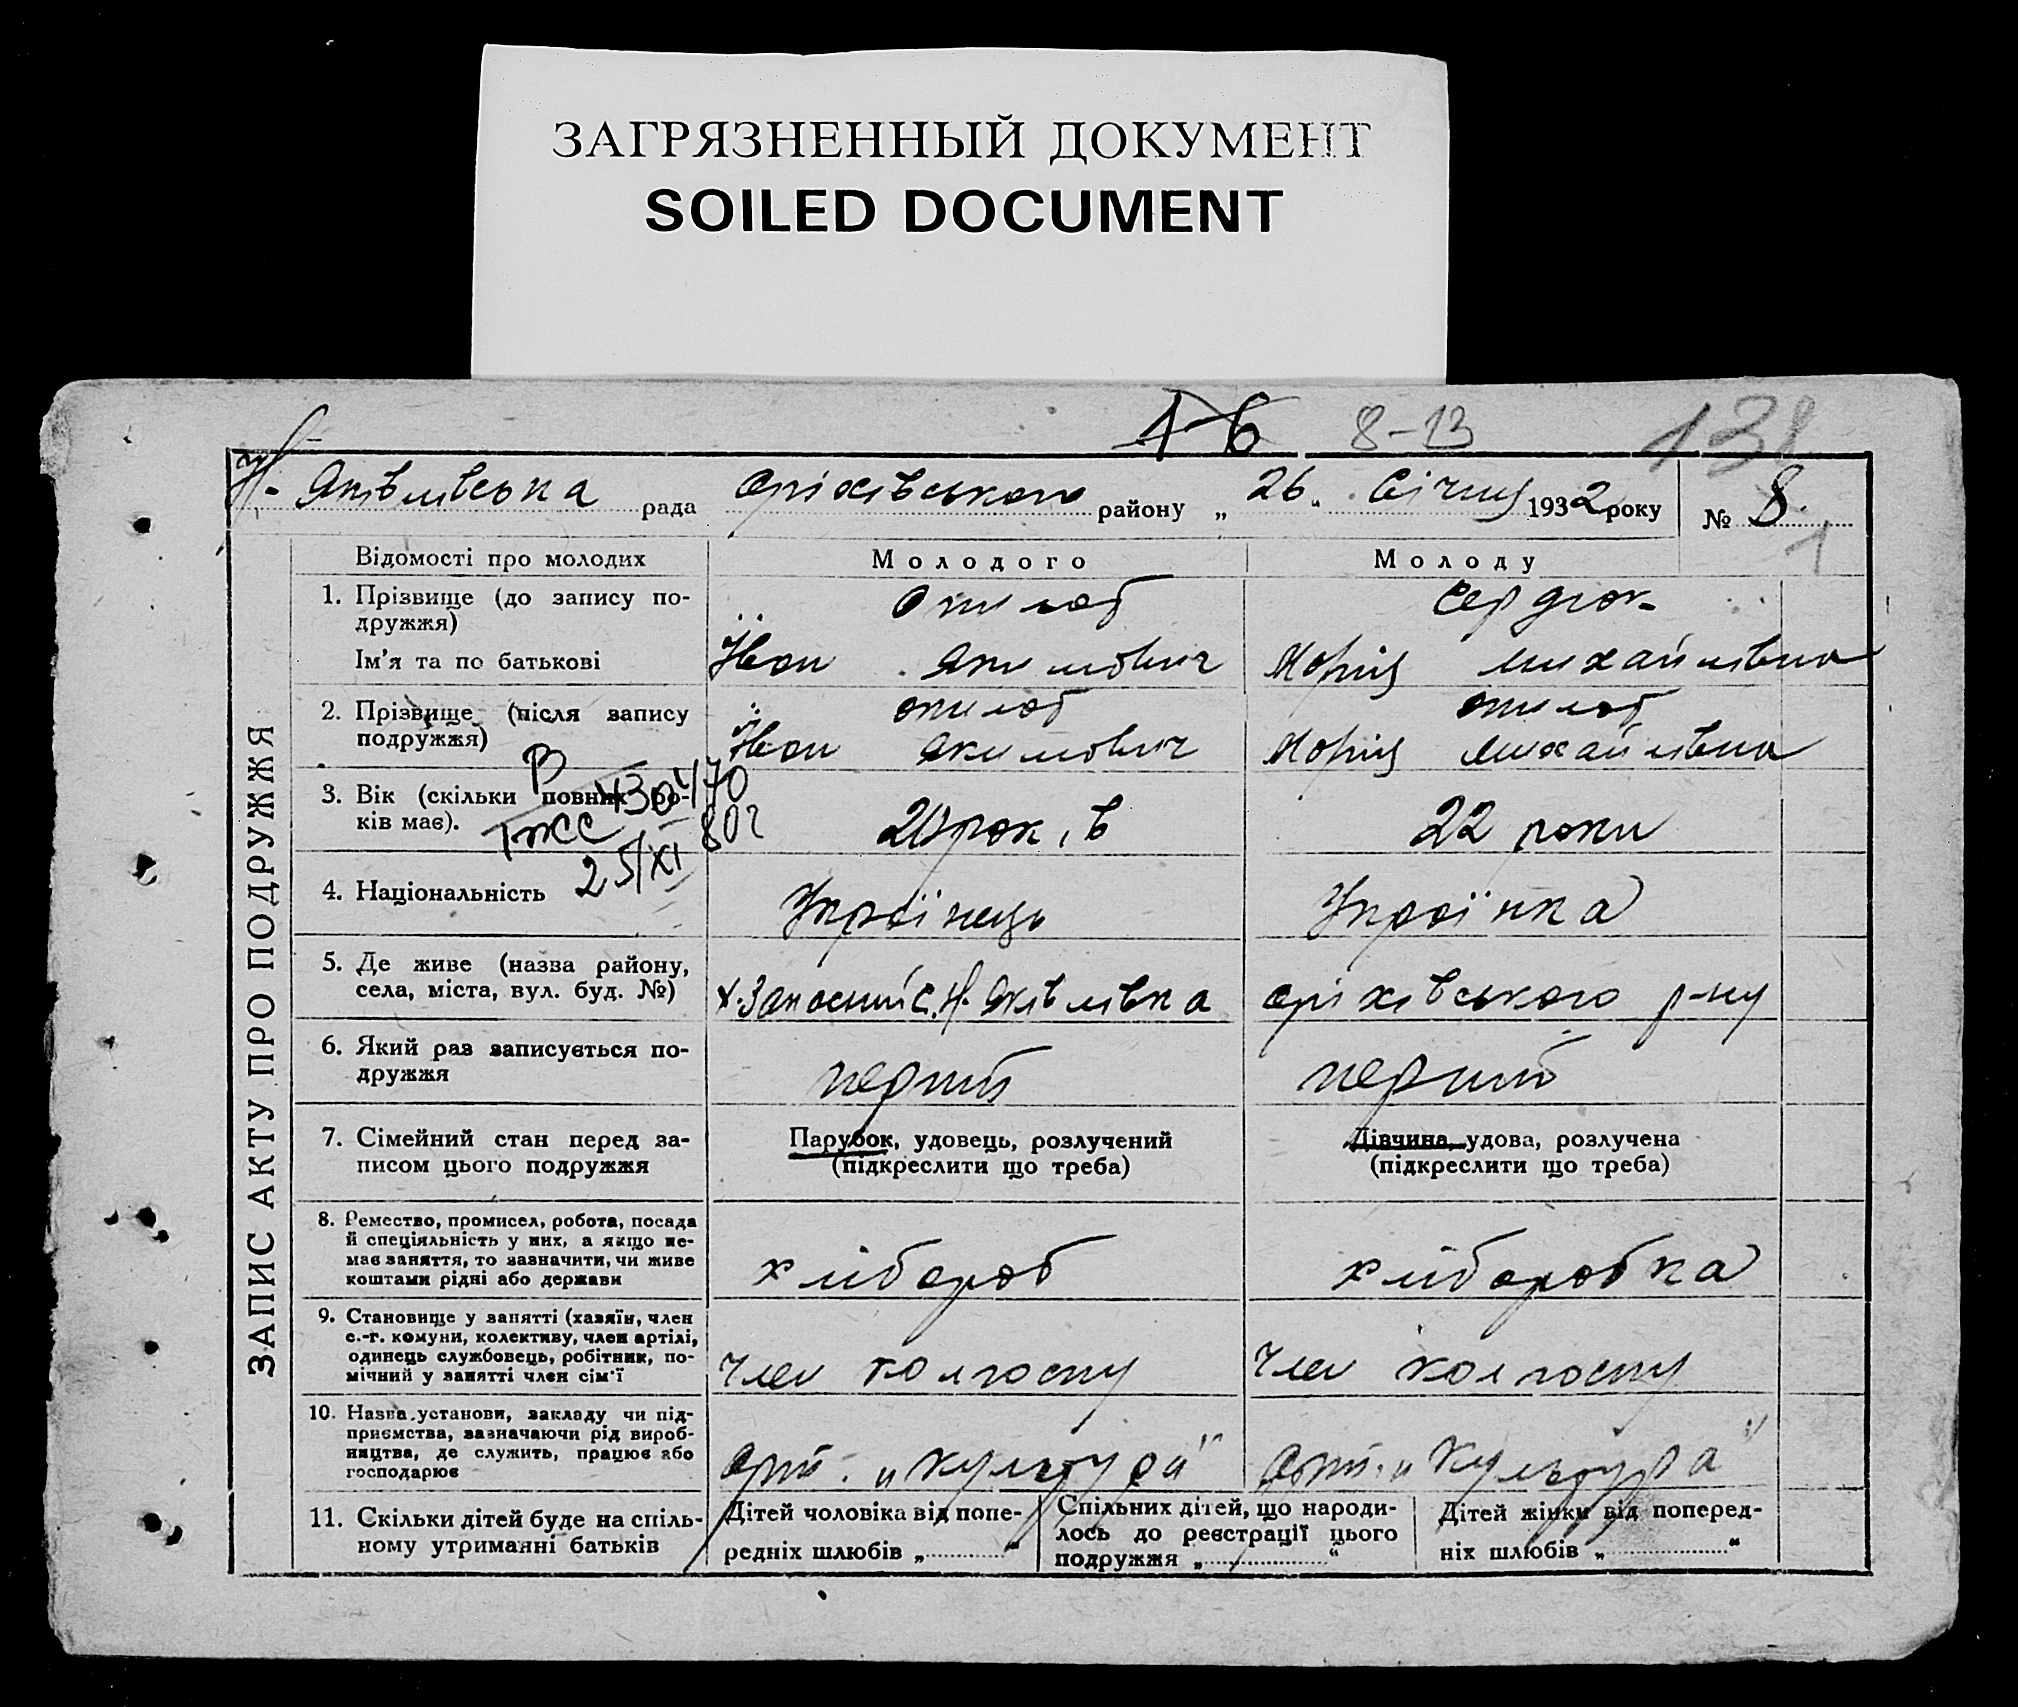 ЗАГРЯЗНЕННЫЙ ДОКУМЕНТ
SOILED DOCUMENT
1-6 8-13 138
Н-Яківлівська рада Оріхівського району „26" Січня 1932 року № 8
1
ЗАПИС АКТУ ПРО ПОДРУЖЖЯ
Відомості про молодих Молодого Молоду
1. Прізвище (до запису по-
дружжя)
Сердюк
Ім'я та по батькові Іван Якимович Марія Михайлівна
2. Прізвище (після запису
подружжя)
Іван Якимович Марія Михайлівна
3. Вік (скільки повних ро-
ків має). 20 років 22 роки
25/XI 80г
4. Національність Українець Українка
5. Де живе (назва району,
села, міста, вул. буд. №) с. Н. Яківлівка Оріхівського р-ну
6. Який раз записується по-
дружжя перший перший
7. Сімейний стан перед за-
писом цього подружжя
Парубок, удовець, розлучений
(підкреслити що треба)
Дівчина, удова, розлучена
(підкреслити що треба)
8. Ремество, промисел, робота, посада
й спеціяльність у них, а якщо не-
має заняття, то зазначити, чи живе
коштами рідні або держави
хлібороб хлібаробка
9. Становище у занятті (хазяїн, член
с.-г. комуни, колективу, член артілі,
одинець службовець, робітник, по-
мічний у занятті член сім'ї
член колгоспу член колгоспу
10. Назва установи, закладу чи під-
приємства, зазначаючи рід вироб-
ництва, де служить, працює або
господарює
Арт. „Культура" Арт. „Культура"
11. Скільки дітей буде на спіль-
ному утриманні батьків
Дітей чоловіка від попе-
редніх шлюбів „ "
Спільних дітей, що народи-
лось до реєстрації цього
подружжя „ "
Дітей жінки від поперед-
ніх шлюбів „ "